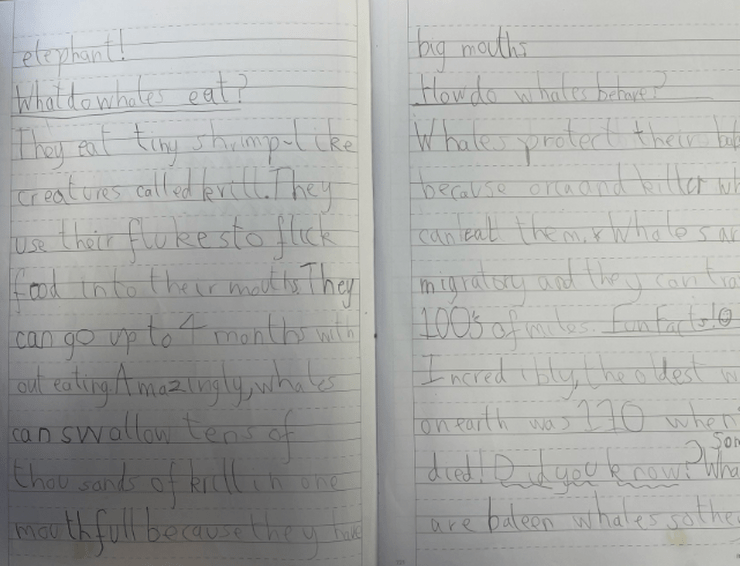 elephant!
What do whales eat?
They eat tiny shrimp-like
creatures called krill. They
use their flukes to flick
food into their mouths They
can go up to 4 months with
out eating. Amazingly, whales
can swallow tens of
thousands of krill in one
mouthfull because they have
big mouths
How do whales behave?
Whales protect their
because orca and killer wh
can eat them. Whales ar
migratory and they can tra
100s of miles. Fun Facts!
Incredibly, the oldest w
on earth was 110 when
died! Did you know? Som
Wha
are baleen whales so the